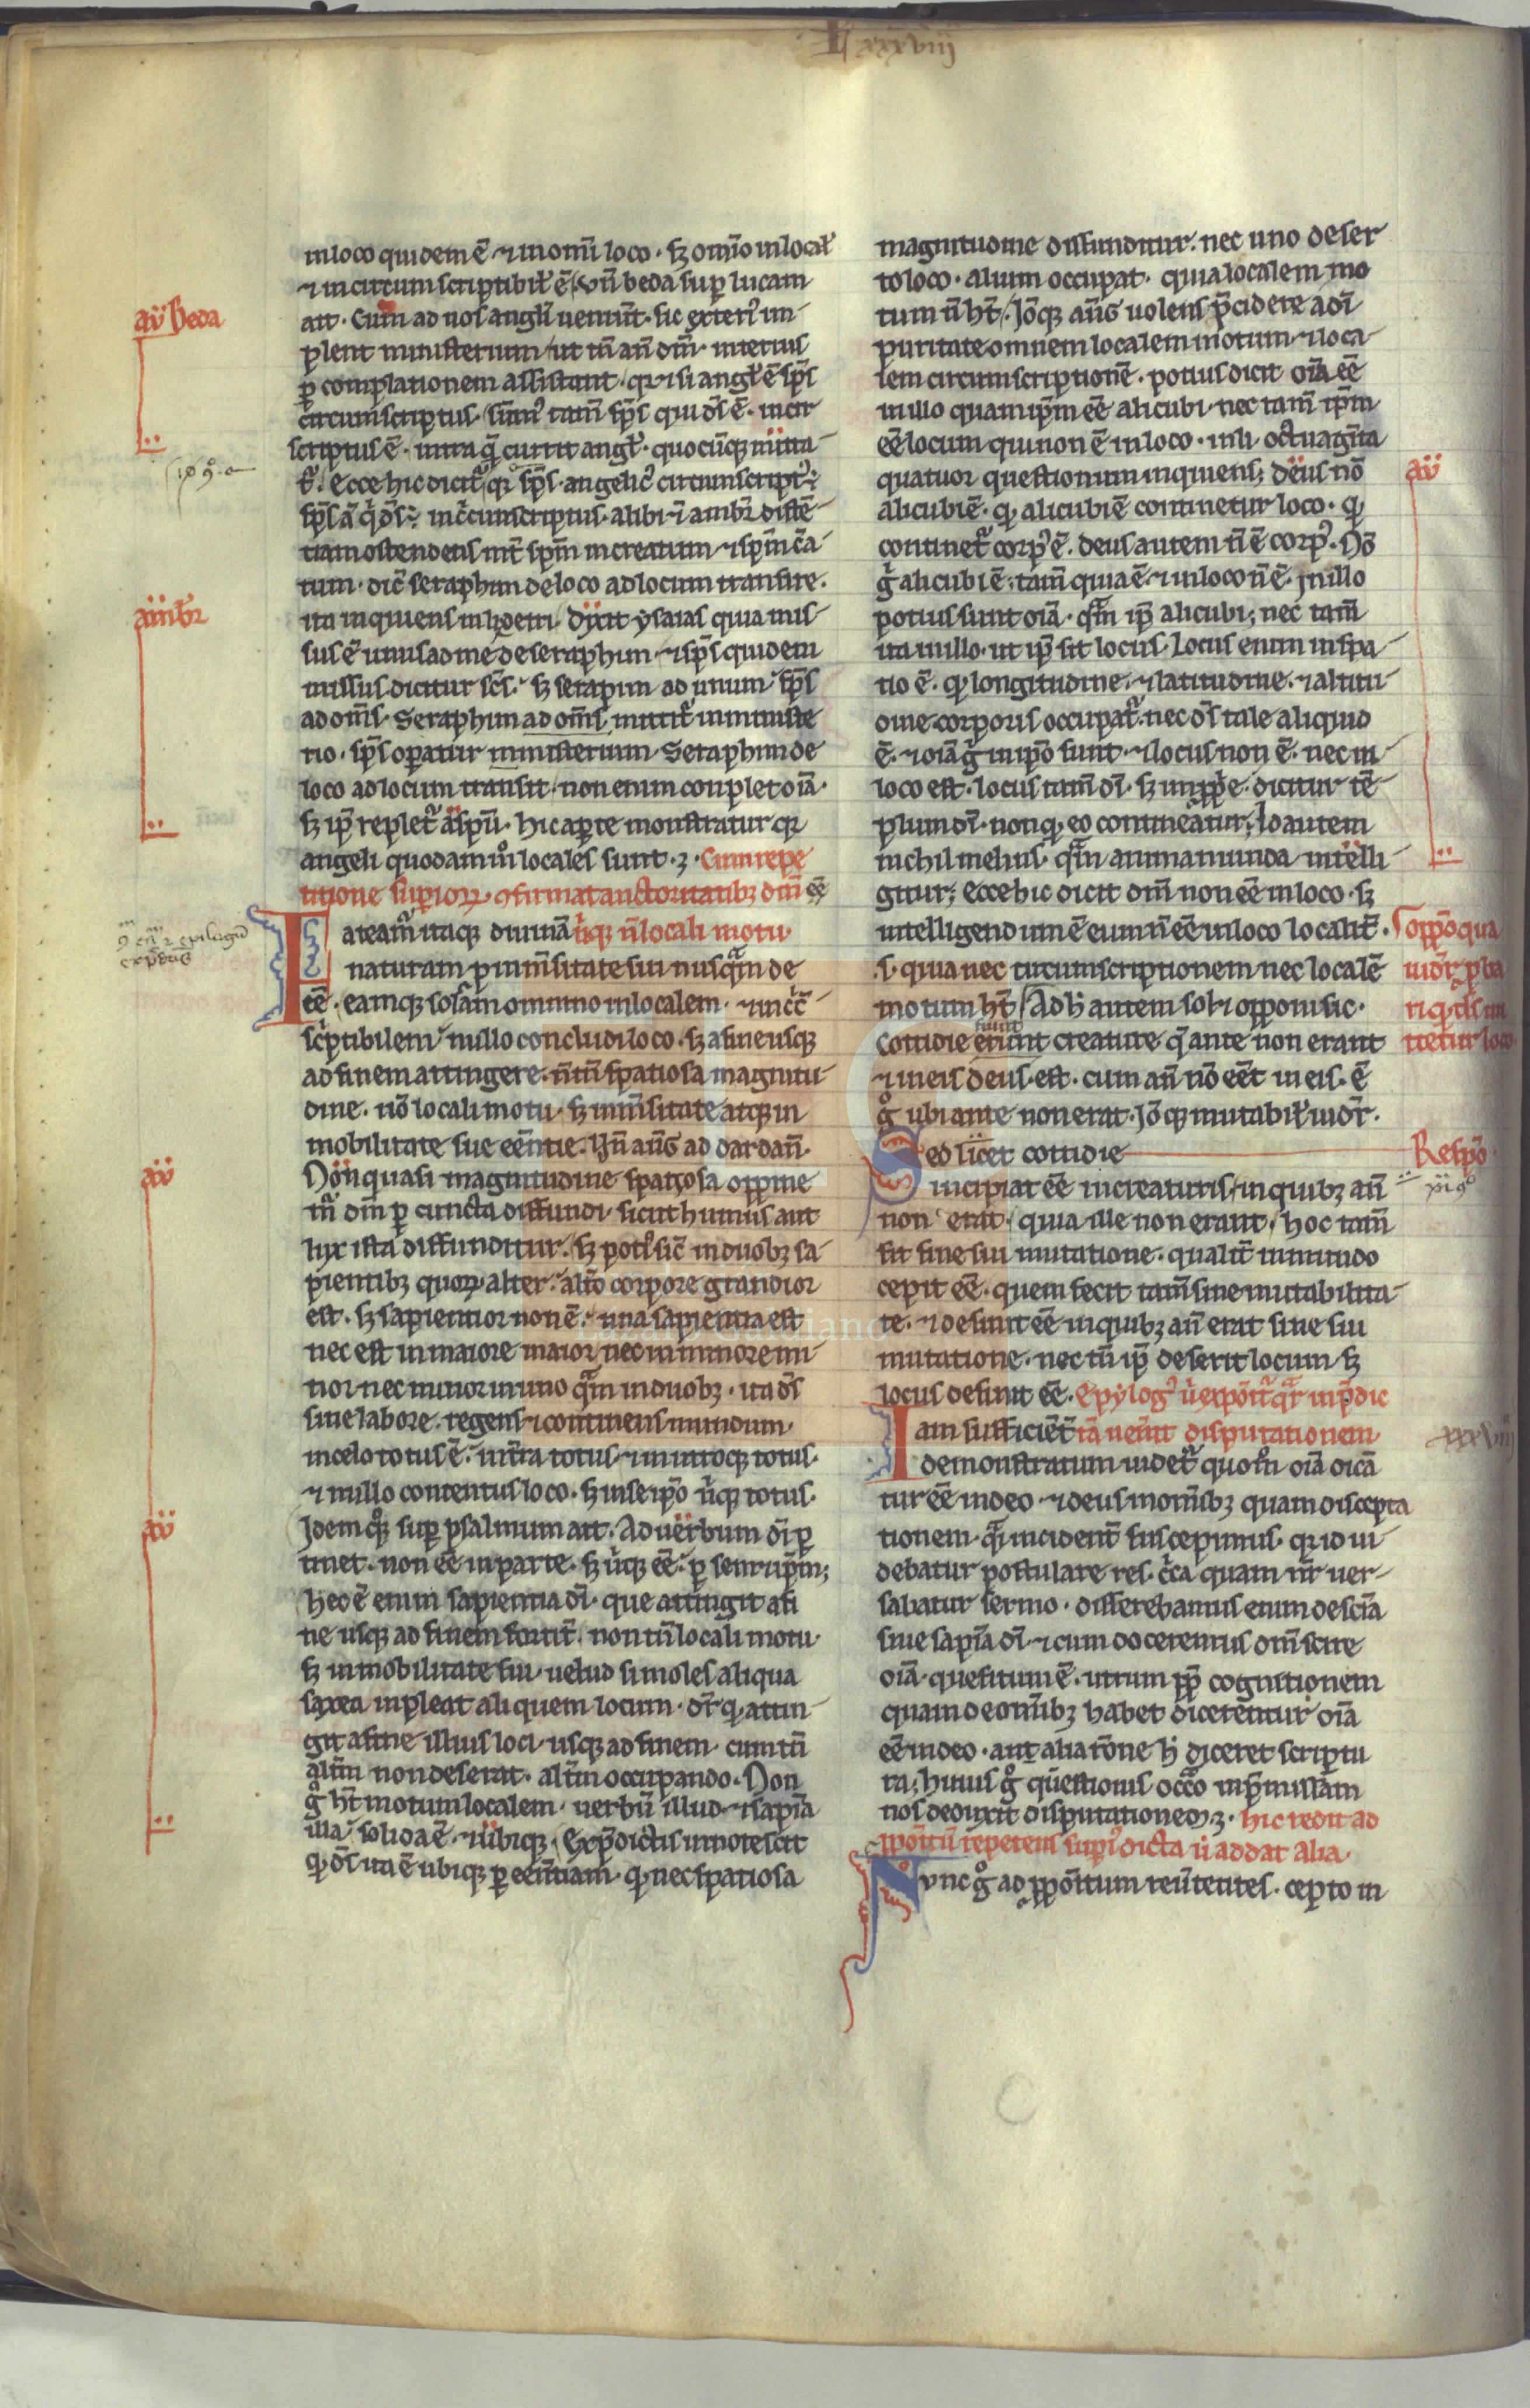 L xxxviij
in loco quidem ē ⁊ in om̄i loco · sꝫ om̄īo inlocał
⁊ incircumscriptibił ē / vn̄ beda sup̱ lucam
ait · Cum ad nos angłi ueniūt · sic exteri᷒ im-
plent ministerium / ut tn̄ an̄ dm̄ · interius
ꝑ complationem assistant · qr ⁊si angł̓ ē sp̄s
circumscriptus · sūm᷒ tam̄ sp̄s qui dš ē · incir
scriptus ē · intra q̄ currit angł̓ · quocūqꝫ mitta-
t᷑ · Ecce hic dicit᷑ qr sp̄s · angelic᷒ circumscript᷒ ·
sp̄s aū q̇ dš · incc̄umscriptus · alibi ⁊̄ ambꝛ distē-
tiam ostendens int̄ sp̄m increatum ⁊ sp̄m c̄a-
tum · dic̄ seraphin de loco ad locum transire ·
ita inquiens in l̓goem · dixit ysaias quia mis-
sus ē unus ad me de seraphin · ⁊ sp̄s quidem
missus dicitur sc̄s · sꝫ serapin ad unum · sp̄s
ad om̄s · Seraphin ad om̄s mittit᷑ in ministe
rio · sp̄s operatur ministerium · Seraphin de
loco ad locum transit · non enim conplet oīa ·
sꝫ ip̄e replet᷑ a sp̄u · hic aperte monstratur qr
angeli quodam m̊ locales sunt · ꝫ · Cum repe
titione superioꝝ · ꝯfirmat auctoritatibꝫ dm̄ ēē
Fateam᷑ itaqꝫ diuinā ubiqꝫ n̄ locali motu ·
naturam p inm̄sitate sui nusq̄m de
ēē · eamqꝫ solam omnino inlocalem · ⁊ incc̄-
sc̓ptibilem · nullo concludi loco · sꝫ a fine usqꝫ
ad finem attingere · n̄ tn̄ spatiosa magnitu-
dine · nō locali motu · sꝫ inm̄sitate atqꝫ in
mobilitate sue eēntie · Vn̄ aug᷒ ad dardan̄ ·
Non quasi magnitudine spatiosa oppine
m᷑ dm̄ ꝑ cuncta diffundi · sicut humus aut
lux ista diffunditur · sꝫ poti᷒ sic̄ in duobꝫ sa-
pientibꝫ quoꝝ alter · alt̓o corpore grandior
est · sꝫ sapientior non ē · una sapientia est
nec est in maiore maior nec in minore mi-
nor nec minor in uno q̄m in duobꝫ · ita dš
sine labore · regens ⁊ continens mundum ·
in celo totus ē · in tr̄a totus · ⁊ in utroqꝫ totus ·
⁊ nullo contentus loco · sꝫ in seip̄o ubiqꝫ totus ·
Idem qꝫ sup̱ psalmum ait · Ad uerbum dī ꝑ
tinet · non ēē in parte · sꝫ ubiqꝫ ēē · ꝑ semetip̄m ;
Hec ē enim sapientia dī · que attingit a fi
ne usqꝫ ad finem fortit̄ · non tn̄ locali motu ·
sꝫ inmobilitate sui · uelud si moles aliqua
saxea inpleat aliquem locum · dr̄ qꝫ attin-
git a fine illius loci · usqꝫ ad finem · cum tn̄
alt̄m non deserat · alt̄m occupando · Non
g̊ ht̄ motum localem · uerbū illud · ⁊ sapīa
illa · solida ē · ⁊ ubiqꝫ · Ex p̄dictis innotescit
qꝫ dš ita ē ubiqꝫ ꝑ eēntiam · qꝫ nec spatiosa
magnitudine diffunditur · nec uno deser
to loco · alium occupat · quia localem mo
tum n̄ ht̄ · Iō̄qꝫ aug᷒ uolens p̄cidere a dī
puritate omnem localem motum ⁊ loca
lem circumscriptionē · potius dicit oīa ēē
in illo quam ip̄m ēē alicubi · nec tam̄ ip̄m
ēē locum qui non ē in loco · in li · octuagīta
quatuor questionum inquiens ; deus nō
alicubi ē · qꝫ alicubi ē continetur loco · qꝫ
continet᷑ corp᷒ ē · deus autem n̄ ē corp᷒ · Nō
g̊ alicubi ē · tam̄ quia ē ⁊ in loco n̄ ē · in illo
potius sunt oīa · q̄m ip̄e alicubi ; nec tam̄
ita in illo · ut ip̄e sit locus · Locus enim in spa-
tio ē · qꝫ longitudine · ⁊ latitudine · ⁊ altitu
dine corporis occupat᷑ · nec dš tale aliquid
ē · ⁊ oīa g̊ in ip̄o sunt · ⁊ locus non ē · nec in
loco est · locus tam̄ dī · sꝫ inꝓp̓e · dicitur tē-
plum dī · non qꝫ eo contineatur ; Id autem
nichil melius · q̄m anima munda intelli
gitur ; Ecce hic dicit dm̄ non ēē in loco · sꝫ
intelligendum ē eum n̄ ēē in loco localit̄ ·
.s. quia nec circumscriptionem nec localē
motum ht̄ / Ad h̄ autem solꝫ opponi sic ·
Cottidie erunt creature q̄ ante non erant
fiunt
⁊ in eis deus est · cum an̄ nō eēt in eis · ē
g̊ ubi ante non erat · Iō̄qꝫ mutabił uidr̄ ·
Sed licet cottidie
incipiat ēē in creaturis / in quibꝫ an̄
non erat · quia ille non erant / hoc tam̄
fit sine sui mutatione · qualit̄ in mundo
cepit ēē · quem fecit tam̄ sine mutabilita-
te · ⁊ desinit ēē in quibꝫ an̄ erat sine sui
mutatione · nec tn̄ ip̄e deserit locum sꝫ
locus desinit ēē · Epylog᷒
Iam sufficiēt̄ disputationem
demonstratum uidet᷑ quom̊ oīa dicā
tur ēē in deo · ⁊ deus in om̄ibꝫ quam discepta
tionem · q̄i incident̄ suscepimus · qr id ui-
debatur postulare res · c̄ca quam nr̄ uer-
sabatur sermo · disserebamus enim de scīa
siue sapīa dī · ⁊ cum doceremus dm̄ scire
oīa · quesitum ē · utrum ꝓp̄ cognitionem
quam de om̄ibꝫ habet dicerentur oīa
ēē in deo · an alia rōne h̄ diceret scriptu
ra ; huius g̊ q̄stionis occ̄o in p̄missam
nos deduxit disputationem ꝫ · hic redit ad
ꝓpōitū repetens sup̓i᷒ dicta ut addat alia ·
Nunc g̊ ad ꝓpōitum reūtentes · cepto in
aü Beda
ambꝛ
aü
aü
aü
Oppō qua
uidr̄ ꝓba
ri qꝫ dš mu
tetur loco
Respō
xxxviij